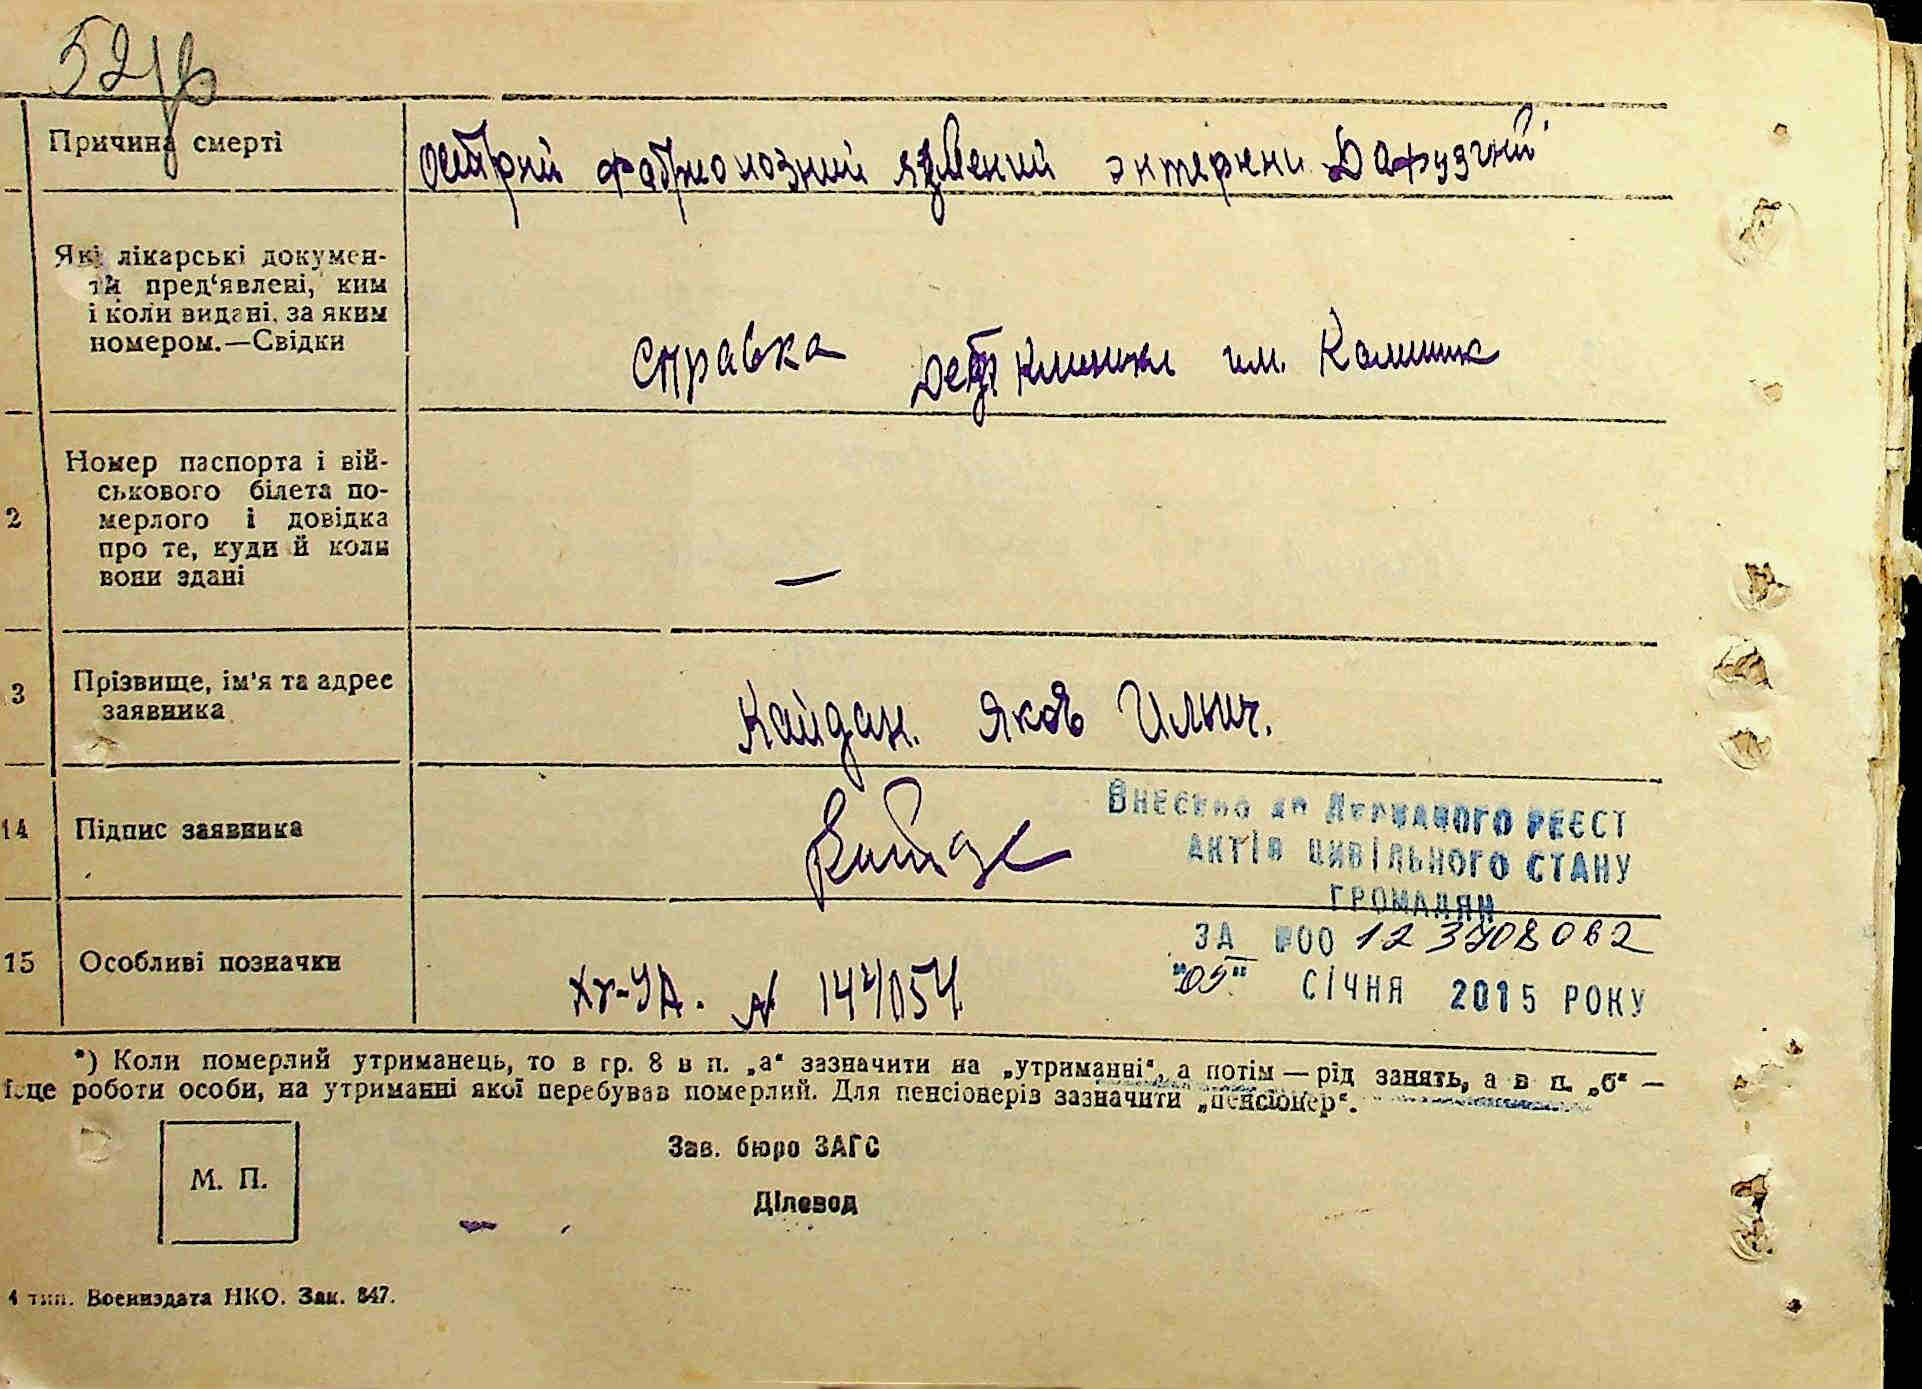 52
Причина смерті
Які лікарські докумен-
ти пред‘явлені, ким
і коли видані, за яким
номером.—Свідки
Справка клиники им. Калинин
Номер паспорта і вій-
2 ськового білета по-
мерлого і довідка
про те, куди й коли
вони здані
—
3 Прізвище, ім'я та адрес
заявника
Кайдан. Яков Ильич.
14 Підпис заявника
Внесено до Державного реєст
актів цивільного стану
громадян
за №00 123708062
"05" січня 2015 року
15 Особливі позначки
№ 144054
*) Коли померлий утриманець, то в гр. 8 в п. „а“ зазначити на „утриманні“, а потім — рід занять, а в п. „б“ —
це роботи особи, на утриманні якої перебував померлий. Для пенсіонерів зазначити „пенсіонер“.
М. П.
Зав. бюро ЗАГС
Діловод
4 тип. Воениздата НКО. Зак. 847.